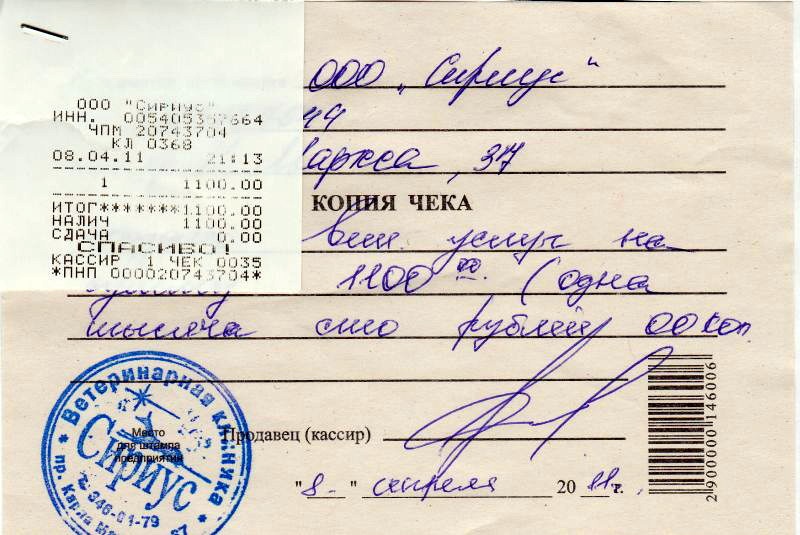 ООО "Сириус"
ИНН. 005405357664
ЧПМ 20743704
КЛ 0368
08.04.11 21:13
1 1100.00
ИТОГ*******1100.00
НАЛИЧ 1100.00
СДАЧА 0.00
СПАСИБО!
КАССИР 1 ЧЕК 0035
*ПНП 000020743704*
ООО „Сириус“
Маркса, 37
КОПИЯ ЧЕКА
вет. услуг на
1100 00. (одна
тысяча сто рублей 00 коп.
Ветеринарная клиника
Сириус
346-01-79
пр. Карла
Место
для штампа
предприятия
Продавец (кассир)
"8" апреля 2011г.
2900000146006